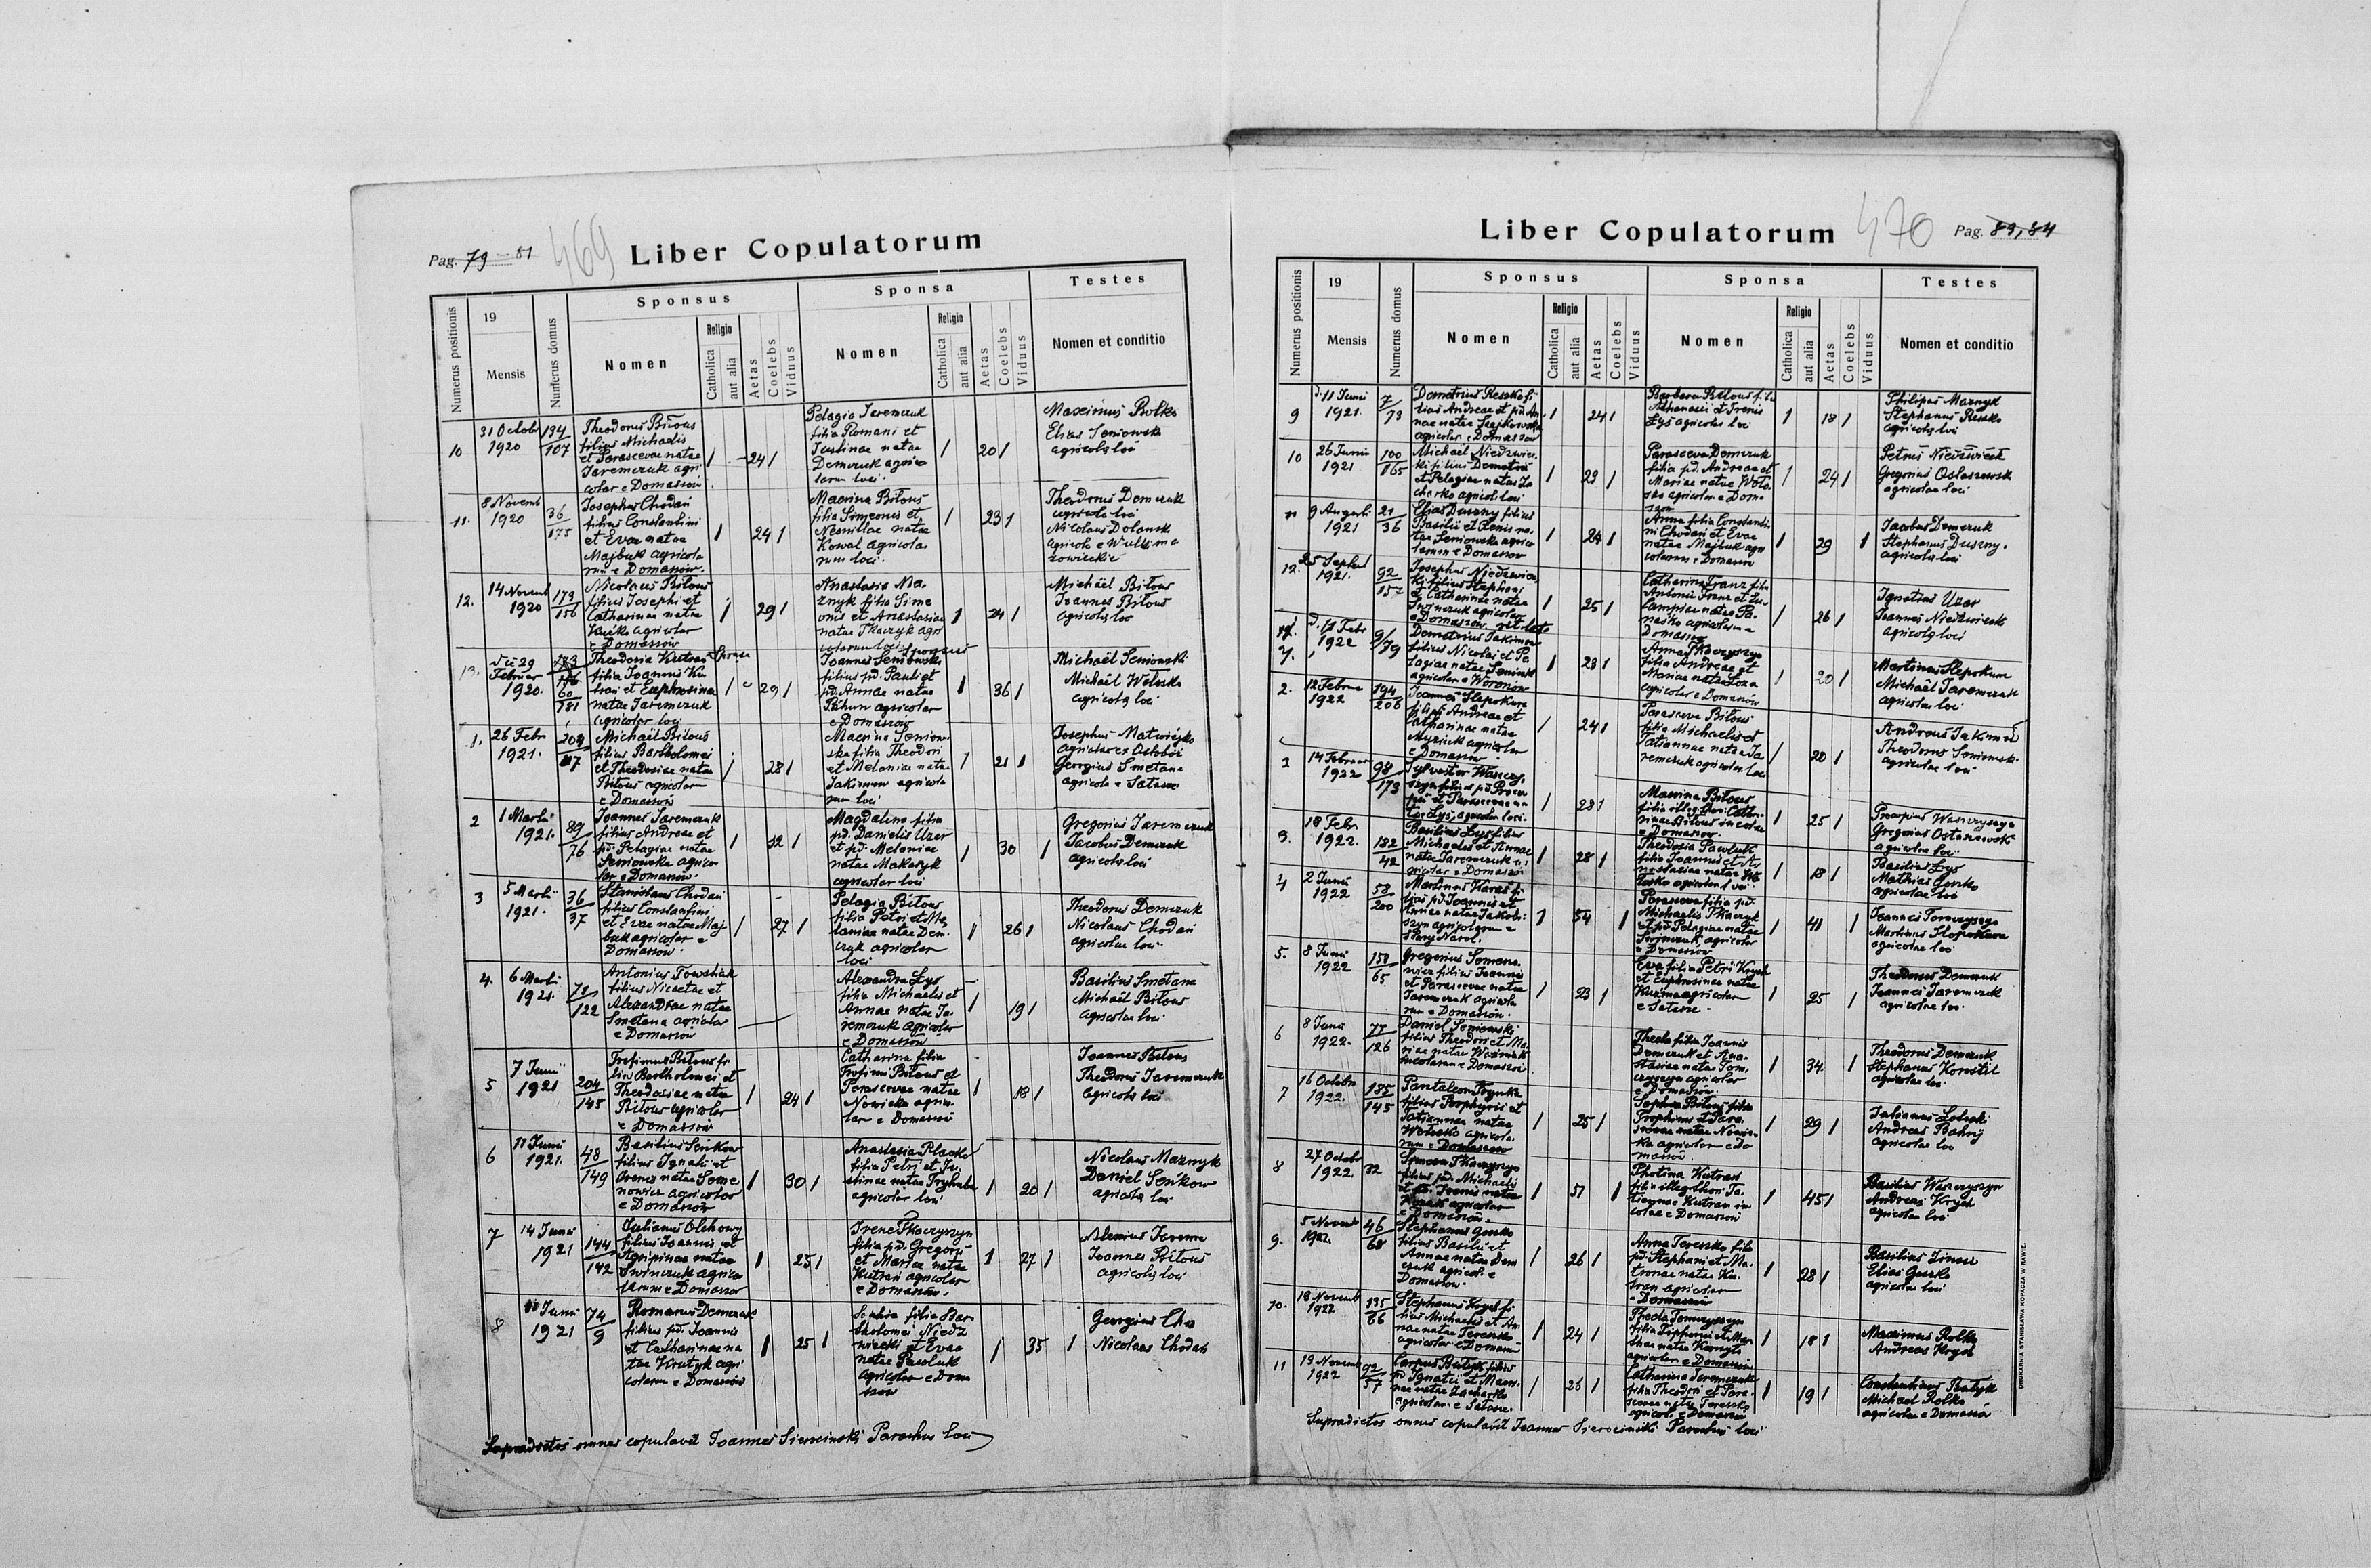 Pag. 79-81
469
Liber Copulatorum
Numerus positionis
19
Mensis
Numerus domus
Sponsus
Nomen
Religio
Catholica
aut alia
Aetas
Coelebs
Viduus
Sponsa
Nomen
Religio
Catholica
aut alia
Aetas
Coelebs
Viduus
Testes
Nomen et conditio
10
31 Octob
1920
134
107
Theodorus Biłous
filius Michaelis
et Parascevae natae
Jaremczuk agri
colar e Domaszów
24
Pelagia Jaremczuk
filia Romani et
Justinae natae
Demczuk agrico
larum loci
20
Maximus Rolko
Elias Seniowski
agricola loci
11.
8 Novemb
1920
36
175
Josephus Chodań
filius Constantini
et Evae natae
Majbuk agricola
rum e Domaszów
24
Macrina Biłous
filia Simeonis et
Neonillae natae
Kowal agricola
rum loci
23
Theodorus Demczuk
agricola loci
Nicolaus
agricola e
12.
14 Novemb
1920
173
156
Nicolaus Biłous
filius Josephi et
Catharinae natae
agricolar
e Domaszów
29
Anastasia Ma-
znyk filia Sime
onis et Anastasiae
natae Tkaczyk agri
colarum loci
24
Michaël Biłous
Joannes Biłous
agricola loci
13.
29
Februar
1920
60
181
Theodosia Kutran
filia Joannis Ku
tran et Euphrosinae
natae Jaremczuk
agricolar loci
29
Joannes Seniowski
filius pd. Pauli et
pd. Annae natae
agricolar
e Domaszów
36
Michaël Seniowski
Michaël Wołosko
agricola loci
1.
26 Febr
1921.
204
117
Michaël Biłous
filius Bartholomei
et Theodosiae natae
Biłous agricolar
e Domaszów
28
Macrina Seniow
ska filia Theodori
et Melaniae natae
Jakimow agricola
rum loci
21
Josephus
agricolar ex
Georgius Smetana
agricola e
2
1 Martii
1921.
89
76
Joannes Jaremczuk
filius Andreae et
pd. Pelagiae natae
Seniowska agrico
lar e Domaszów
32
Magdalina filia
pd. Danielis Uzar
et pd. Melaniae
natae
agricolar loci
30
Gregorius Jaremczuk
Jacobus Demczuk
agricola loci
3
5 Martii
1921.
36
37
Stanislaus Chodań
filius Constantini
et Evae natae Maj
buk agricolar e
Domaszów
27
Pelagia Biłous
filia Petri et Me
laniae natae Dem
czuk agricolar
loci
26
Theodorus Demczuk
Nicolaus Chodań
agricolae loci
4.
6 Martii
1921.
78
122
Antonius
filius Nicetae et
Alexandrae natae
Smetana agricolar
e Domaszów
Alexandra Łys
filia Michaelis et
Annae natae Ja
remczuk agricolar
e Domaszów
19
Basilius Smetana
Michaël Biłous
agricolae loci
5
7 Junii
1921
204
145
Trofimus Biłous fi
lius Bartholomei et
Theodosiae natae
Biłous agricolar
e Domaszów
24
Catharina filia
Trofimi Biłous et
Parascevae natae
Nowicka agrico
lar e Domaszów
18
Joannes Biłous
Theodorus Jaremczuk
agricola loci
6
11 Junii
1921.
48
149
Basilius Seńkow
filius Ignatii et
Irenis natae Seme
nowicz agricolar
e Domaszów
30
Anastasia
filia Petri et Ju
stinae natae
agricolar loci
20
Nicolaus Maznyk
Daniel Seńkow
agricola loci
7
14 Junii
1921
144
142
Julianus Olchowy
filius Joannis et
Agripinae natae
Swinczuk agrico
larum e Domaszów
25
Irene Tkaczyszyn
filia pd. Gregorii
et Mariae natae
Kutran agricolar
e Domaszów
27
Joannes Biłous
agricola loci
8
Junii
1921
74
9
Romanus Demczuk
filius pd. Joannis
et Catharinae na
tae agri
colarum e Domaszów
25
Sophia filia Bar
tholomei Niedź
wiecki et Evae
natae Pawluk
agricolar e Doma
szów
35
Georgius
Nicolaus Chodań
Supradictos omnes copulavit Joannes Sierociński Parochus loci
470
Liber Copulatorum
Pag. 83, 84
Numerus positionis
19
Mensis
Numerus domus
Sponsus
Nomen
Religio
Catholica
aut alia
Aetas
Coelebs
Viduus
Sponsa
Nomen
Religio
Catholica
aut alia
Aetas
Coelebs
Viduus
Testes
Nomen et conditio
9
11 Junii
1921.
7
73
Demetrius Reszko fi
lius Andreae et pd. An
nae natae
agricolar e Domaszów
24
Barbara Biłous filia
Athanasii et Irenis
Łys agricolar loci
18
Philipus Maznyk
Stephanus Reszko
agricola loci
10
26 Junii
1921
100
165
Michaël Niedźwiec
ki filius Demetrii
et Pelagiae natae Za
charko agricol loci
23
Parasceva Demczuk
filia pd. Andreae et
Mariae natae Woło
sko agricolar e Doma
szów
24
Petrus Niedźwiecki
Gregorius Ostaszewski
agricolae loci
11
9 Augusti
1921
21
36
Elias Duszny filius
Basilii et Xenis na
tae Seniowska agrico
larum e Domaszów
24
Anna filia Constanti
ni Chodań et Evae
natae Majbuk agri
colarum e Domaszów
29
Jacobus Demczuk
Stephanus Duszny
agricola loci
12.
25 Septem
1921.
92
157
Josephus Niedźwiec
ki filius Stephani
et Catharinae natae
Swinczuk agricolar
e Domaszów
25
Catharina Franz filia
Antonii Franz et Eu
lampiae natae Pa
naśko agricolarum e
Domaszów
26
Ignatius Uzar
Joannes Niedźwiecki
agricola loci
1.
11 Febr
1922
9
79
Demetrius Jakimow
filius Nicolai et Pe
lagiae natae
agricolar e Woronów
23
Anna Tkaczyszyn
filia Andreae et
Mariae natae
agricolar e Domaszów
20
Martinus Sleporkura
Michaël Jaremczuk
agricolae loci
2.
12 Februa
1922
194
206
Joannes Sleporkura
fil. pd. Andreae et
Catharinae natae
agricolar
e Domaszów
24
Parasceva Biłous
filia Michaelis et
Tatiannae natae Ja
remczuk agricolar loci
20
Andreas Jakimow
Theodorus Seniowski
agricolae loci
14 Februar
1922
98
173
Sylvester Waszczy
szyn filius pd. Proco
pii et Parascevae na
tae Łys, agricolar loci
28
Macrina Biłous
filia illeg. thori Catha
rinae Biłous incolae
e Domaszów
25
Procopius Waszczyszyn
Gregorius Ostaszewski
agricolae loci
3.
18 Febr.
1922.
182
42
Basilius Łys filius
Michaelis et Annae
natae Jaremczuk a
gricolar e Domaszów
28
Theodosia Pawluk
filia Joannis et A
nastasiae natae Wo
łosko agricolar loci
18
Basilius Łys
Mathias Gorsko
agricolae loci
4
2 Junii
1922
58
200
Martinus Karas fi
lius pd. Joannis et
Annae natae
agricolarum e
Stary Narol.
54
Parasceva filia pd.
Michaelis Tkaczyk
et pd. Pelagiae natae
Jaremczuk, agricolar
e Domaszów
41
Joannes Tomczyszyn
Martinus Sleporkura
agricolae loci
5.
8 Junii
1922
158
65
Gregorius Semeno
wicz filius Joannis
et Parascevae natae
Jaremczuk agricola
rum e Domaszów
23
Eva filia Petri Krysk
et Euphrosinae natae
Kuźma agricolar
e
25
Theodorus Demczuk
Joannes Jaremczuk
agricolae loci
6
8 Junii
1922.
77
126
Daniel Seniowski
filius Theodori et Ma
riae natae Woźniak
incolarum e Domaszów
Thecla filia Joannis
Demczuk et Ana
stasiae natae Tom
czyszyn agricolar
e Domaszów
34
Theodorus Demczuk
Stephanus Kornetil
agricolae loci
7
16 Octobr
1922.
185
145
Pantaleon Hryńko
filius Porphyrii et
Tatiannae natae
Wołosko agricola
rum e Domaszów
25
Sophia Biłous filia
Trophimi et Para
scevae natae Nowic
ka agricolar e Do
maszów
29
Julianus
Andreas Bahrij
agricolae loci
8
27 Octobr
1922.
32
Simeon Tkaczyszyn
filius pd. Michaelis
et pd. Irenis natae
agricolar
e Domaszów
51
Photina Kutran
filia illeg. thori Ta
tiannae Kutran in
colae e Domaszów
45
Basilius Waszczyszyn
Andreas Krysk
agricolae loci
9.
5 Novemb
1922.
46
68
Stephanus Gorsko
filius Basilii et
Annae natae Dem
czuk agricol. e
Domaszów
26
Anna Tereszko filia
pd. Stephani et Ma
tronae natae Ku
tran agricolar
e Domaszów
28
Basilius
Elias Gorsko
agricolae loci
10.
18 Novemb
1922
135
66
Stephanus Krysk fi
lius Michaelis et An
nae natae Tereszko
agricolar e Domaszów
24
Thecla Tomczyszyn
filia et Mar
thae natae
agricolar e Domaszów
18
Maximus Rolko
Andreas Krysk
11
19 Novemb
1922
92
57
Carpus Batyk filius
pd. Ignatii et Macri
nae natae Zacharko
agricolar e
26
Catharina Jaremczuk
filia Theodori et Para
scevae natae Tereszko
agricol. e Domaszów
19
Constantinus Batyk
Michaël Rolko
agricolae e Domaszów
Supradictos omnes copulavit Joannes Sierociński Parochus loci
DRUKARNIA STANISŁAWA KOPACZA W RAWIE.